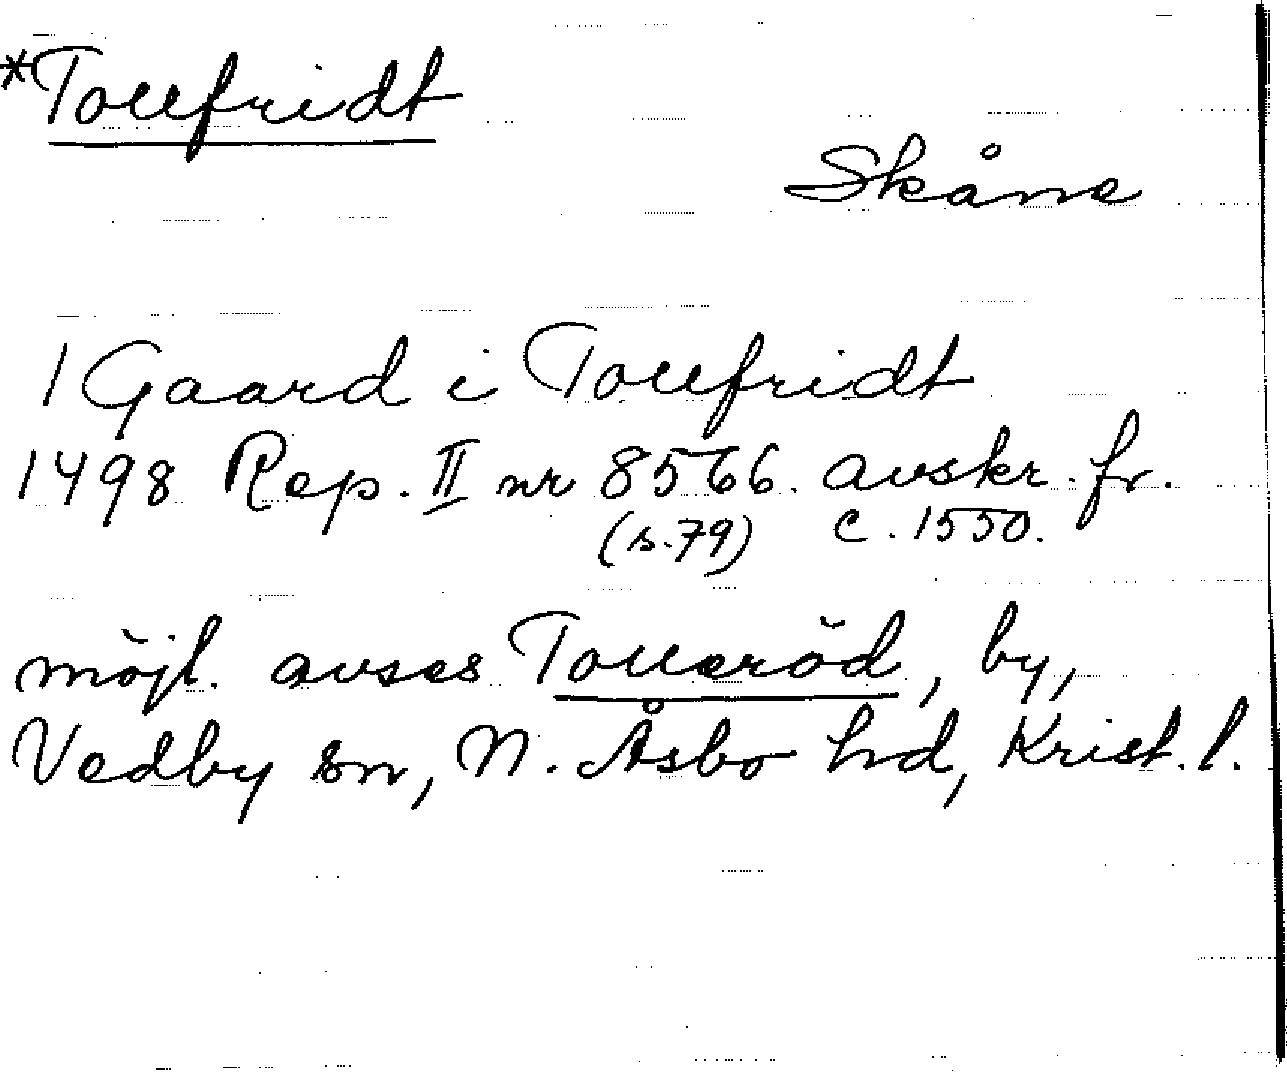 *Touefridt
Skåne
1 Gaard i Touefridt
1498 Rep. II nr 8566. avskr. fr.
(s. 79) c. 1550.
möjl. avses Toueröd, by,
Vedby sn, N. Åsbo hd, Krist. l.